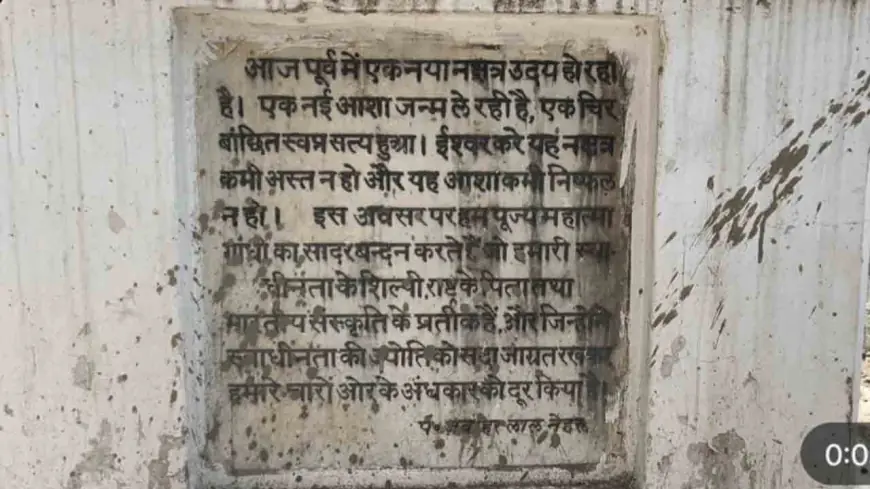 आज पूर्व में एक नया नक्षत्र उदय हो रहा
है। एक नई आशा जन्म ले रही है, एक चिर
बांछित स्वप्न सत्य हुआ। ईश्वर करे यह नक्षत्र
कभी अस्त न हो और यह आशा कभी निष्फल
न हो। इस अवसर पर हम पूज्य महात्मा
गांधी का सादर बन्दन करते हैं जो हमारी स्वा-
धीनता के शिल्पी, राष्ट्र के पिता तथा
भारतीय संस्कृति के प्रतीक हैं, और जिन्होंने
स्वाधीनता की ज्योति को सदा जाग्रत रखकर
हमारे चारों ओर के अंधकार को दूर किया है।
पं॰ जवाहरलाल नेहरू
0:0